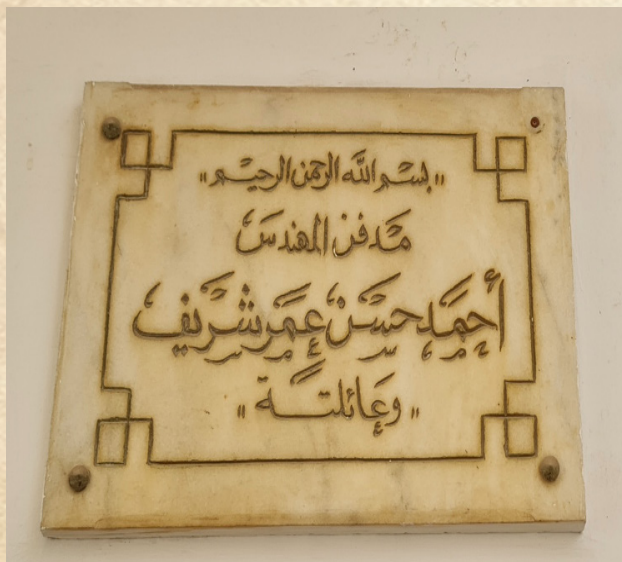 "بسم الله الرحمن الرحيم"
مدفن المهندس
أحمد حسن عمر شريف
"وعائلتة"